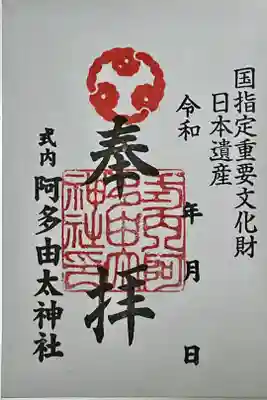 国指定重要文化財
日本遺産
令和 年 月 日
奉拝
式内 阿多由太神社
式内阿
多由太
神社印